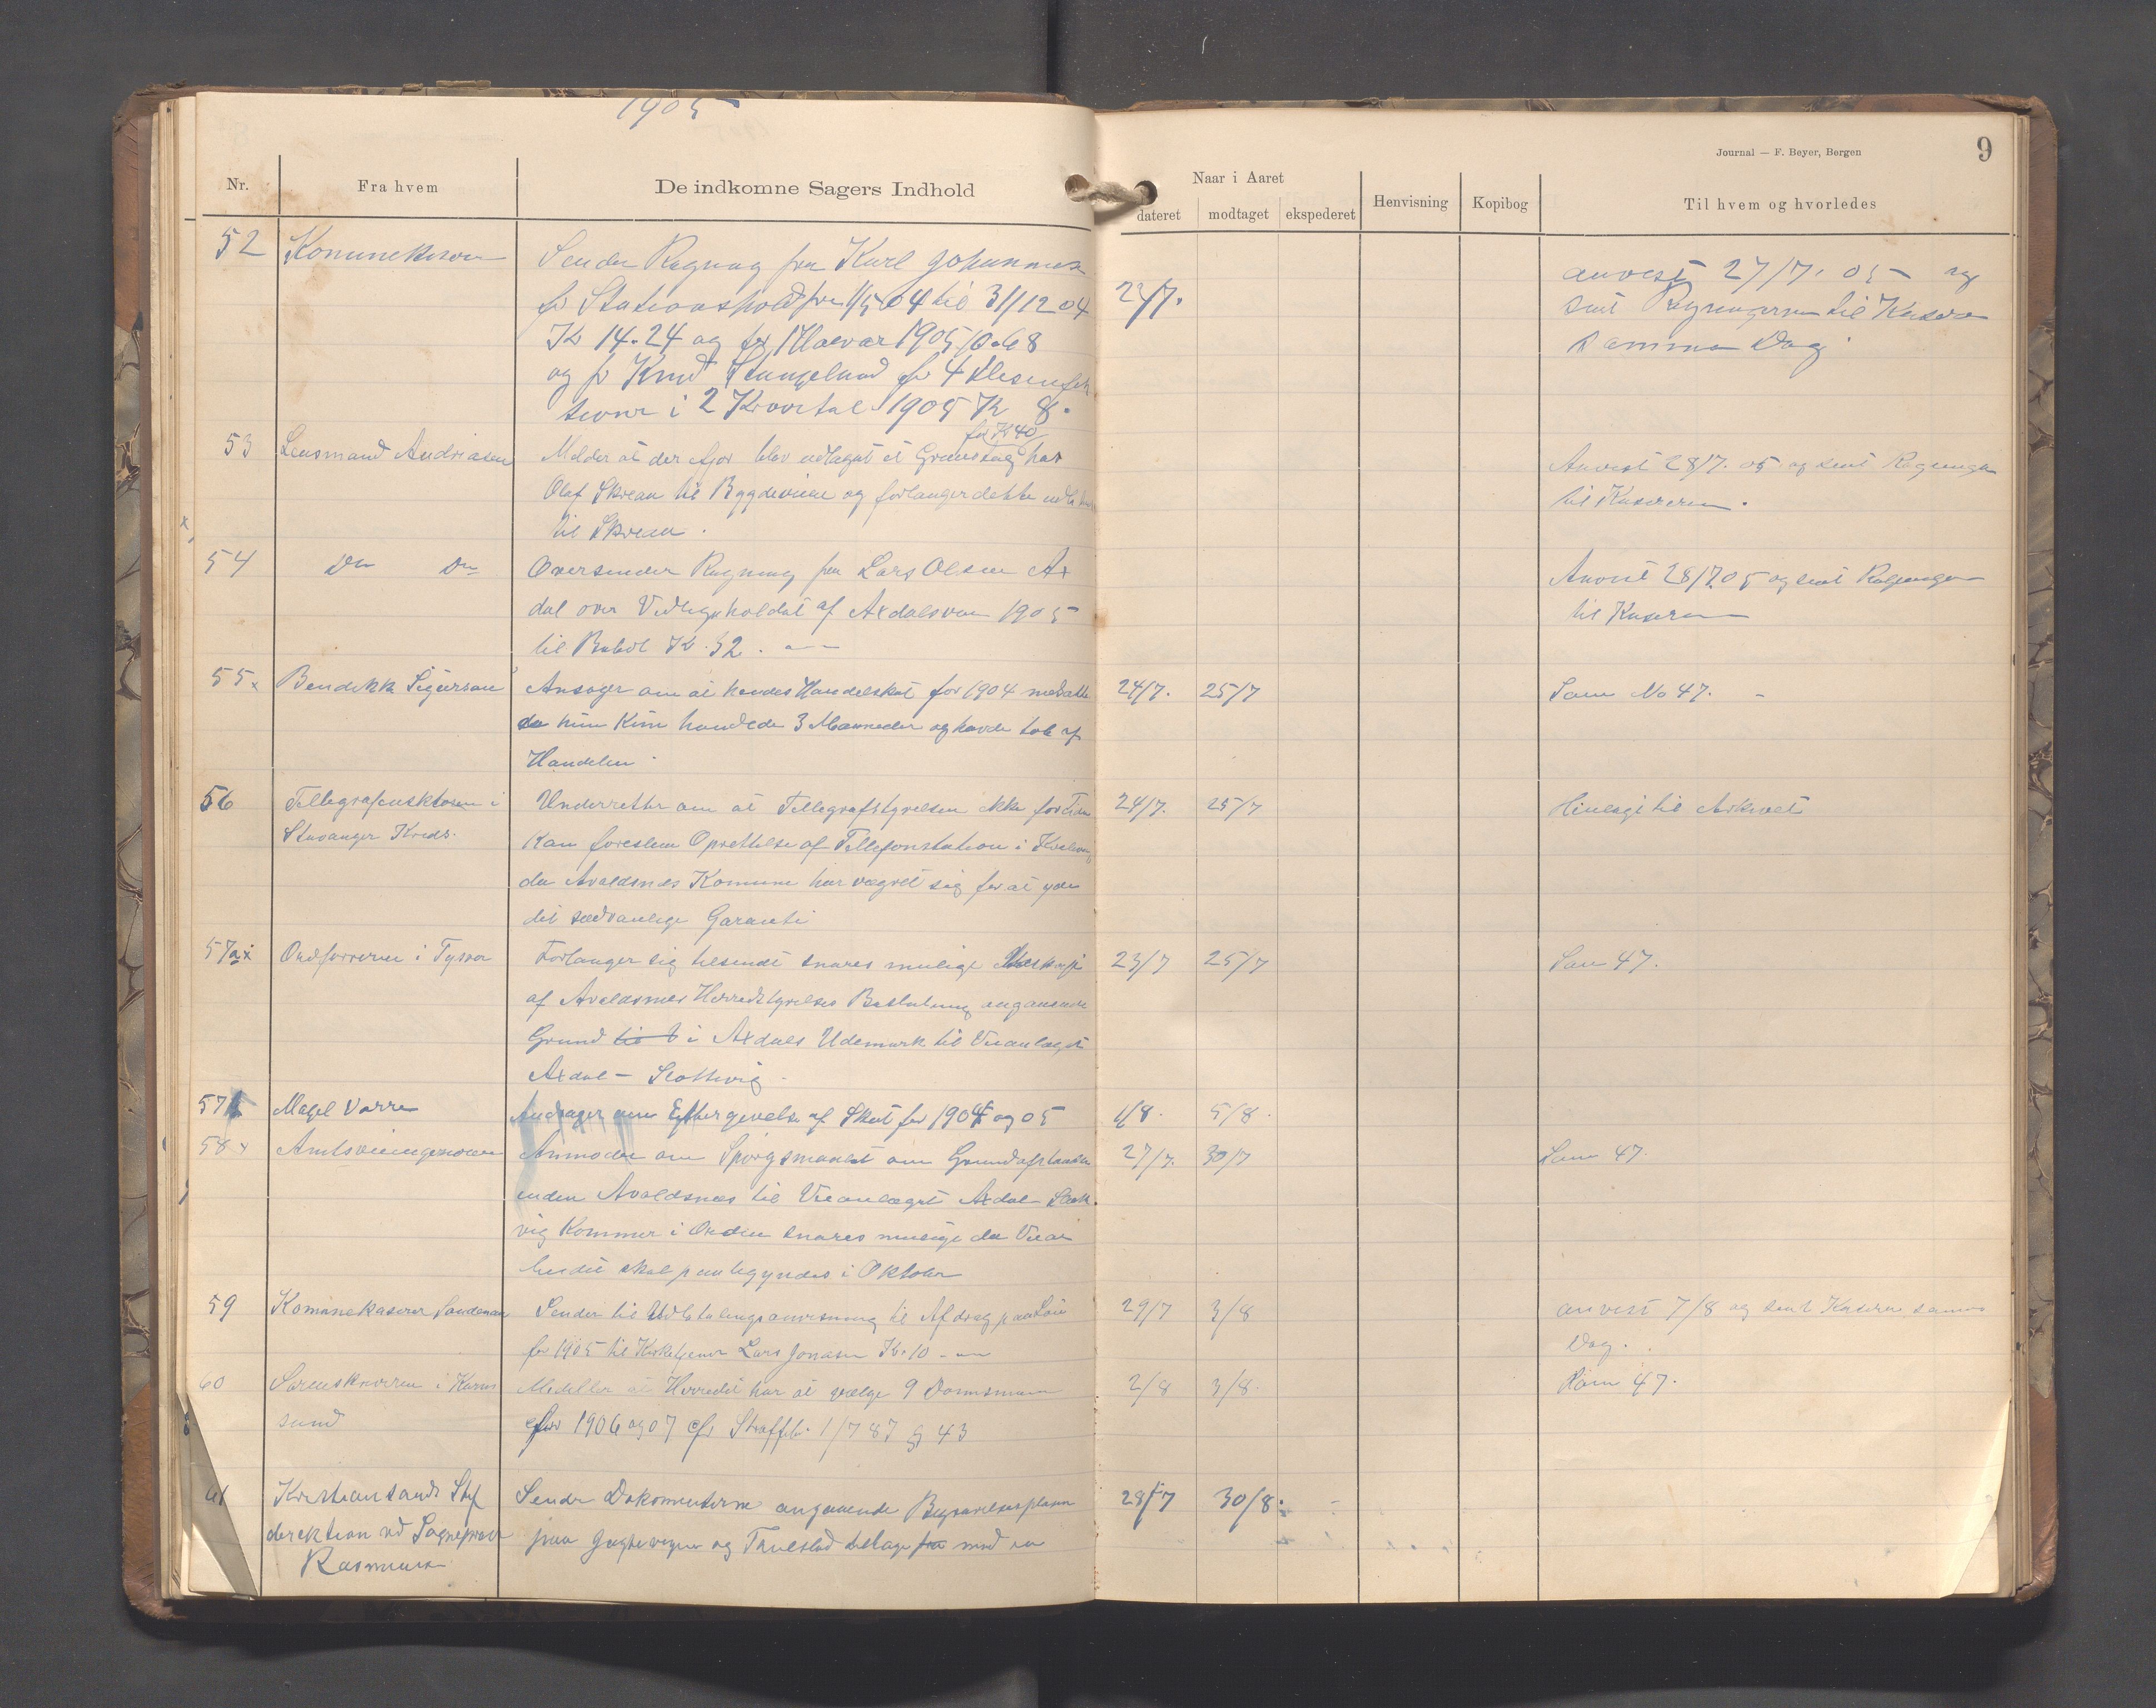 1905
Journal — F. Beyer, Bergen
9
Nr.
Fra hvem
De indkomne Sagers Indhold
Naar i Aaret
dateret
modtaget
ekspederet
Henvisning
Kopibog
Til hvem og hvorledes
52
Sender Regning fra Karl Johannesen
for Stationshold fra 1/5 04 til 31/12 04
Kr 14.24 og for 1 Halvaar 1905 10.68
og fr Knud Stangeland for 4
i 2 Kvartal 1905 Kr 8.
23/7.
anvist 27/7. 05 og
sent Regningerne til Kasserer
samme Dag
53
Lensmand Andreasen
for Kr 40
Melder at der ifjor blev udtaget et Grustag hos
Olaf Skreen til Bygdeveiene og forlanger dette
til Skreen.
Anvist 28/7. 05 og sent Regningen
til Kassereren.
54
Do Do
Oversender Regning fra Lars Olsen Ax
dal over Vedligeholdet af Axdalsveien 1905
til Beløb Kr. 32. —
Anvist 28/7. 05 og sent Regningen
til Kasseren
55 x
Bendikk Sigurson
Ansøger om at hendes Handelskat for 1904
da hun kun handlede 3 Maaneder og havde tab af
Handelen.
24/7.
25/7
Som No 47. -
56
Tellegrafinsktøren i
Stavanger Kreds.
Underretter om at Tellegrafstyrelsen ikke for Tiden
kan foreslaa Oprettelse af Tellefonstation i
da Avaldsnes Komune har vægret sig for at yde
det sædvanlige Garanti
24/7.
25/7
Henlagt til Arkivet
57a x
Ordføreren i Tysvær
Forlanger sig tilsendt snares mulige
af Avaldsnes Herredstyrelses Beslutning angaaende
Grund til V i Axdals Udemark til Veianlæget
Axdal - Slottevig
23/7
25/7
Som 47.
57b
Andrager om Eftergivelse af Skat for 1904 og 05
1/8.
5/8.
58 x
Anmoder om Spørgsmaalet om Grundafstaaelse
inden Avaldsnes til Veianlæget Axdal - Slotte
vig kommer i Orden snares mulige da Veiar
beidet skal paabegyndes i Oktober
27/7.
30/7
Som 47.
59
Komunekaserer
Sender til Udbetalingsanvisning til Afdrag paa Løn
for 1905 til Kirketjener Lars Jonasen Kr. 10 -
29/7
3/8
anvist 7/8 og sent Kaserer samme
Dag.
60
Sorenskriveren i Karm
sund
Meddeler at Herredet har at vælge 9 Domsmænd
for 1906 og 07 cfr Straffel. 1/7 87 § 43
2/8
3/8.
Som 47.
61
Kristiansands Stif
derektion ved Sogneprest
Rasmussen
Sender Dokumenterne angaaende
paa og tillage fra med en
28/7
30/8.